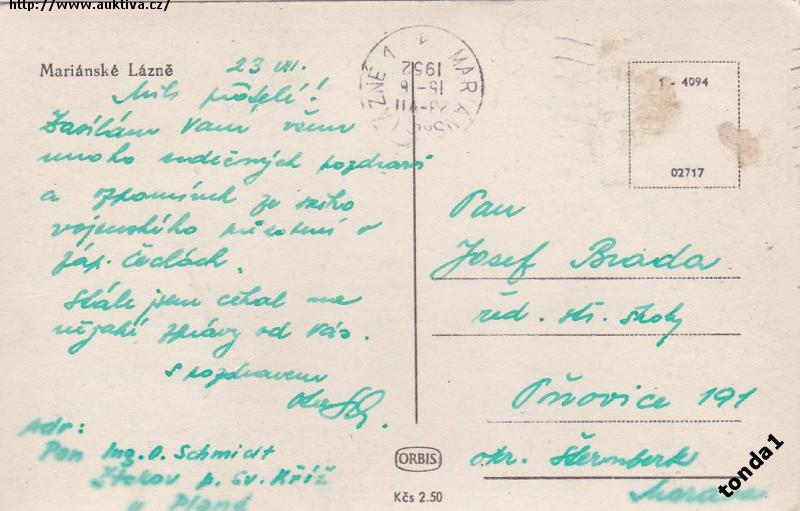 http://www.auktiva.cz/
Mariánské Lázně
23 VII.
Milí přátelé!
Zasílám Vám všem
mnoho srdečných pozdravů
a vzpomínek ze svého
vojenského působení v
záp. Čechách.
Stále jsem čekal na
nějaké zprávy od Vás.
s pozdravem
Adr:
Pan Ing. O. Schmidt
p. Sv. Kříž
u Plané
MARIÁNSKÉ LÁZNĚ 1
23-VII
15-16
1952
1 - 4094
02717
Pan
Josef Brada
řed. stř. školy
Pňovice 191
okr. Šternberk
Morava
ORBIS
Kčs 2.50
tonda1